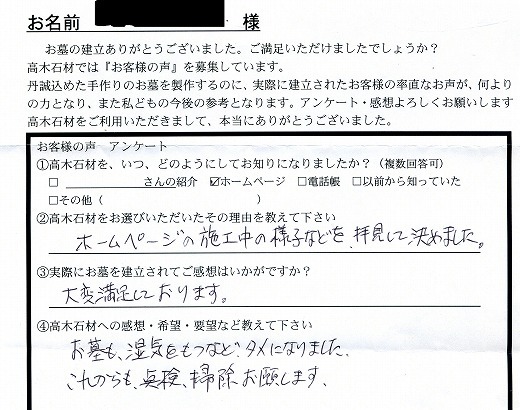 お名前 様
お墓の建立ありがとうございました。ご満足いただけましたでしょうか？
高木石材では『お客様の声』を募集しています。
丹誠込めた手作りのお墓を製作するのに、実際に建立されたお客様の率直なお声が、何より
の力となり、また私どもの今後の参考となります。アンケート・感想よろしくお願いします
高木石材をご利用いただきまして、本当にありがとうございました。
お客様の声 アンケート
①高木石材を、いつ、どのようにしてお知りになりましたか？（複数回答可）
□ さんの紹介 ☑ホームページ □電話帳 □以前から知っていた
□その他（ ）
②高木石材をお選びいただいたその理由を教えて下さい
ホームページの施工中の様子などを、拝見して決めました。
③実際にお墓を建立されてご感想はいかがですか？
大変満足しております。
④高木石材への感想・希望・要望など教えて下さい
お墓も、湿気をもつなど、タメになりました、
これからも、点検、掃除お願します、